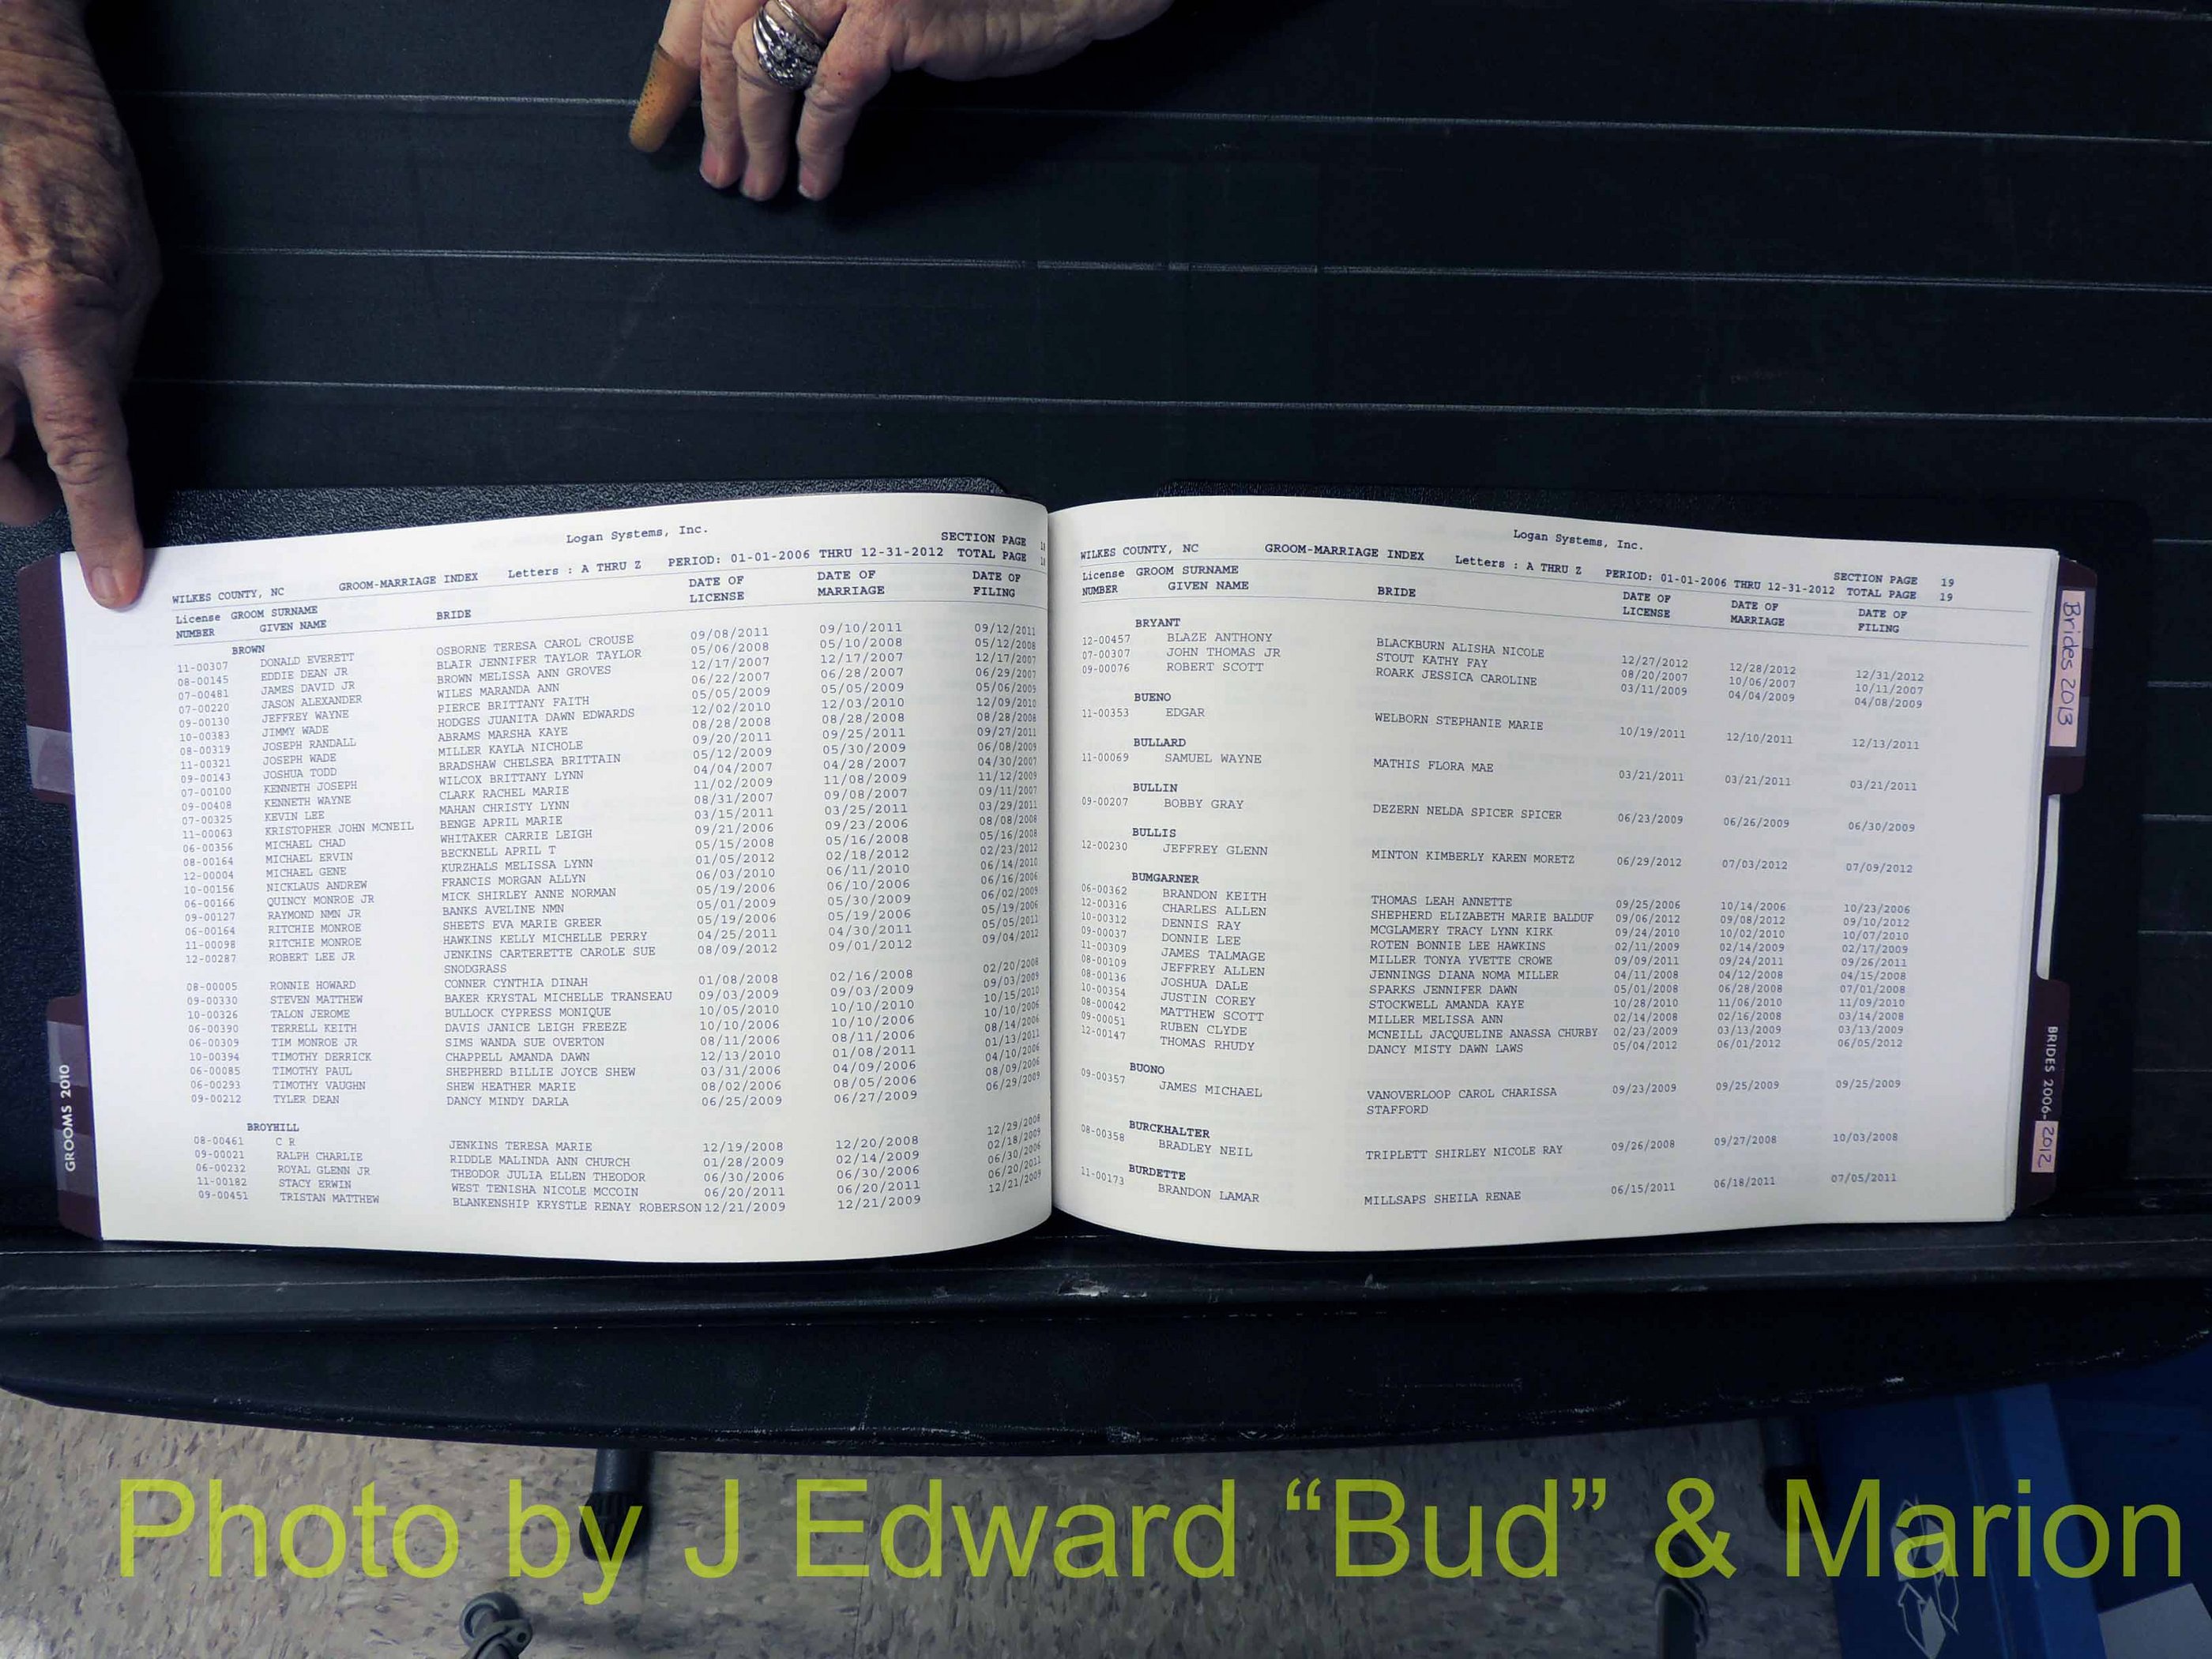 Logan Systems, Inc.
WILKES COUNTY, NC GROOM-MARRIAGE INDEX Letters : A THRU Z PERIOD: 01-01-2006 THRU 12-31-2012 SECTION PAGE
TOTAL PAGE
License GROOM SURNAME DATE OF DATE OF DATE OF
NUMBER GIVEN NAME BRIDE LICENSE MARRIAGE FILING
BROWN
11-00307 DONALD EVERETT OSBORNE TERESA CAROL CROUSE 09/08/2011 09/10/2011 09/12/2011
08-00145 EDDIE DEAN JR BLAIR JENNIFER TAYLOR TAYLOR 05/06/2008 05/10/2008 05/12/2008
07-00481 JAMES DAVID JR BROWN MELISSA ANN GROVES 12/17/2007 12/17/2007 12/17/2007
07-00220 JASON ALEXANDER WILES MARANDA ANN 06/22/2007 06/28/2007 06/29/2007
09-00130 JEFFREY WAYNE PIERCE BRITTANY FAITH 05/05/2009 05/05/2009 05/06/2009
10-00383 JIMMY WADE HODGES JUANITA DAWN EDWARDS 12/02/2010 12/03/2010 12/09/2010
08-00319 JOSEPH RANDALL ABRAMS MARSHA KAYE 08/28/2008 08/28/2008 08/28/2008
11-00321 JOSEPH WADE MILLER KAYLA NICHOLE 09/20/2011 09/25/2011 09/27/2011
09-00143 JOSHUA TODD BRADSHAW CHELSEA BRITTAIN 05/12/2009 05/30/2009 06/08/2009
07-00100 KENNETH JOSEPH WILCOX BRITTANY LYNN 04/04/2007 04/28/2007 04/30/2007
09-00408 KENNETH WAYNE CLARK RACHEL MARIE 11/02/2009 11/08/2009 11/12/2009
07-00325 KEVIN LEE MAHAN CHRISTY LYNN 08/31/2007 09/08/2007 09/11/2007
11-00063 KRISTOPHER JOHN MCNEIL BENGE APRIL MARIE 03/15/2011 03/25/2011 03/29/2011
06-00356 MICHAEL CHAD WHITAKER CARRIE LEIGH 09/21/2006 09/23/2006 08/08/2008
08-00164 MICHAEL ERVIN BECKNELL APRIL T 05/15/2008 05/16/2008 05/16/2008
12-00004 MICHAEL GENE KURZHALS MELISSA LYNN 01/05/2012 02/18/2012 02/23/2012
10-00156 NICKLAUS ANDREW FRANCIS MORGAN ALLYN 06/03/2010 06/11/2010 06/14/2010
06-00166 QUINCY MONROE JR MICK SHIRLEY ANNE NORMAN 05/19/2006 06/10/2006 06/16/2006
09-00127 RAYMOND NMN JR BANKS AVELINE NMN 05/01/2009 05/30/2009 06/02/2009
06-00164 RITCHIE MONROE SHEETS EVA MARIE GREER 05/19/2006 05/19/2006 05/19/2006
11-00098 RITCHIE MONROE HAWKINS KELLY MICHELLE PERRY 04/25/2011 04/30/2011 05/05/2011
12-00287 ROBERT LEE JR JENKINS CARTERETTE CAROLE SUE 08/09/2012 09/01/2012 09/04/2012
SNODGRASS
08-00005 RONNIE HOWARD CONNER CYNTHIA DINAH 01/08/2008 02/16/2008 02/20/2008
09-00330 STEVEN MATTHEW BAKER KRYSTAL MICHELLE TRANSEAU 09/03/2009 09/03/2009 09/03/2009
10-00326 TALON JEROME BULLOCK CYPRESS MONIQUE 10/05/2010 10/10/2010 10/15/2010
06-00390 TERRELL KEITH DAVIS JANICE LEIGH FREEZE 10/10/2006 10/10/2006 10/10/2006
06-00309 TIM MONROE JR SIMS WANDA SUE OVERTON 08/11/2006 08/11/2006 08/14/2006
10-00394 TIMOTHY DERRICK CHAPPELL AMANDA DAWN 12/13/2010 01/08/2011 01/13/2011
06-00085 TIMOTHY PAUL SHEPHERD BILLIE JOYCE SHEW 03/31/2006 04/09/2006 04/10/2006
06-00293 TIMOTHY VAUGHN SHEW HEATHER MARIE 08/02/2006 08/05/2006 08/09/2006
09-00212 TYLER DEAN DANCY MINDY DARLA 06/25/2009 06/27/2009 06/29/2009
BROYHILL
08-00461 C R JENKINS TERESA MARIE 12/19/2008 12/20/2008 12/29/2008
09-00021 RALPH CHARLIE RIDDLE MALINDA ANN CHURCH 01/28/2009 02/14/2009 02/18/2009
06-00232 ROYAL GLENN JR THEODOR JULIA ELLEN THEODOR 06/30/2006 06/30/2006 06/30/2006
11-00182 STACY ERWIN WEST TENISHA NICOLE MCCOIN 06/20/2011 06/20/2011 06/20/2011
09-00451 TRISTAN MATTHEW BLANKENSHIP KRYSTLE RENAY ROBERSON 12/21/2009 12/21/2009 12/21/2009
GROOMS 2010
Logan Systems, Inc.
WILKES COUNTY, NC GROOM-MARRIAGE INDEX Letters : A THRU Z PERIOD: 01-01-2006 THRU 12-31-2012 SECTION PAGE 19
TOTAL PAGE 19
License GROOM SURNAME DATE OF DATE OF DATE OF
NUMBER GIVEN NAME BRIDE LICENSE MARRIAGE FILING
BRYANT
12-00457 BLAZE ANTHONY BLACKBURN ALISHA NICOLE 12/27/2012 12/28/2012 12/31/2012
07-00307 JOHN THOMAS JR STOUT KATHY FAY 08/20/2007 10/06/2007 10/11/2007
09-00076 ROBERT SCOTT ROARK JESSICA CAROLINE 03/11/2009 04/04/2009 04/08/2009
BUENO
11-00353 EDGAR WELBORN STEPHANIE MARIE 10/19/2011 12/10/2011 12/13/2011
BULLARD
11-00069 SAMUEL WAYNE MATHIS FLORA MAE 03/21/2011 03/21/2011 03/21/2011
BULLIN
09-00207 BOBBY GRAY DEZERN NELDA SPICER SPICER 06/23/2009 06/26/2009 06/30/2009
BULLIS
12-00230 JEFFREY GLENN MINTON KIMBERLY KAREN MORETZ 06/29/2012 07/03/2012 07/09/2012
BUMGARNER
06-00362 BRANDON KEITH THOMAS LEAH ANNETTE 09/25/2006 10/14/2006 10/23/2006
12-00316 CHARLES ALLEN SHEPHERD ELIZABETH MARIE BALDUF 09/06/2012 09/08/2012 09/10/2012
10-00312 DENNIS RAY MCGLAMERY TRACY LYNN KIRK 09/24/2010 10/02/2010 10/07/2010
09-00037 DONNIE LEE ROTEN BONNIE LEE HAWKINS 02/11/2009 02/14/2009 02/17/2009
11-00309 JAMES TALMAGE MILLER TONYA YVETTE CROWE 09/09/2011 09/24/2011 09/26/2011
08-00109 JEFFREY ALLEN JENNINGS DIANA NOMA MILLER 04/11/2008 04/12/2008 04/15/2008
08-00136 JOSHUA DALE SPARKS JENNIFER DAWN 05/01/2008 06/28/2008 07/01/2008
10-00354 JUSTIN COREY STOCKWELL AMANDA KAYE 10/28/2010 11/06/2010 11/09/2010
08-00042 MATTHEW SCOTT MILLER MELISSA ANN 02/14/2008 02/16/2008 03/14/2008
09-00051 RUBEN CLYDE MCNEILL JACQUELINE ANASSA CHURBY 02/23/2009 03/13/2009 03/13/2009
12-00147 THOMAS RHUDY DANCY MISTY DAWN LAWS 05/04/2012 06/01/2012 06/05/2012
BUONO
09-00357 JAMES MICHAEL VANOVERLOOP CAROL CHARISSA 09/23/2009 09/25/2009 09/25/2009
STAFFORD
BURCKHALTER
08-00358 BRADLEY NEIL TRIPLETT SHIRLEY NICOLE RAY 09/26/2008 09/27/2008 10/03/2008
BURDETTE
11-00173 BRANDON LAMAR MILLSAPS SHEILA RENAE 06/15/2011 06/18/2011 07/05/2011
Brides 2013
BRIDES 2006-2012
Photo by J Edward “Bud” & Marion